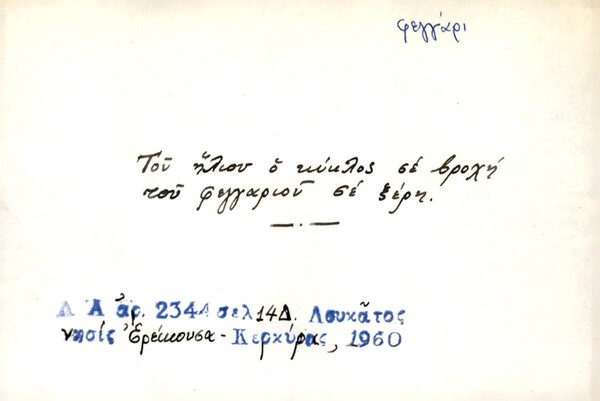 φεγγάρι
Τοῦ ἥλιου ὁ κύκλος σέ βροχή
τοῦ φεγγαριοῦ σέ ξέρη.
Λ Α ἀρ. 2344 σελ 14 Δ. Λουκᾶτος
νησίς Ἐρείκουσα - Κερκύρας, 1960